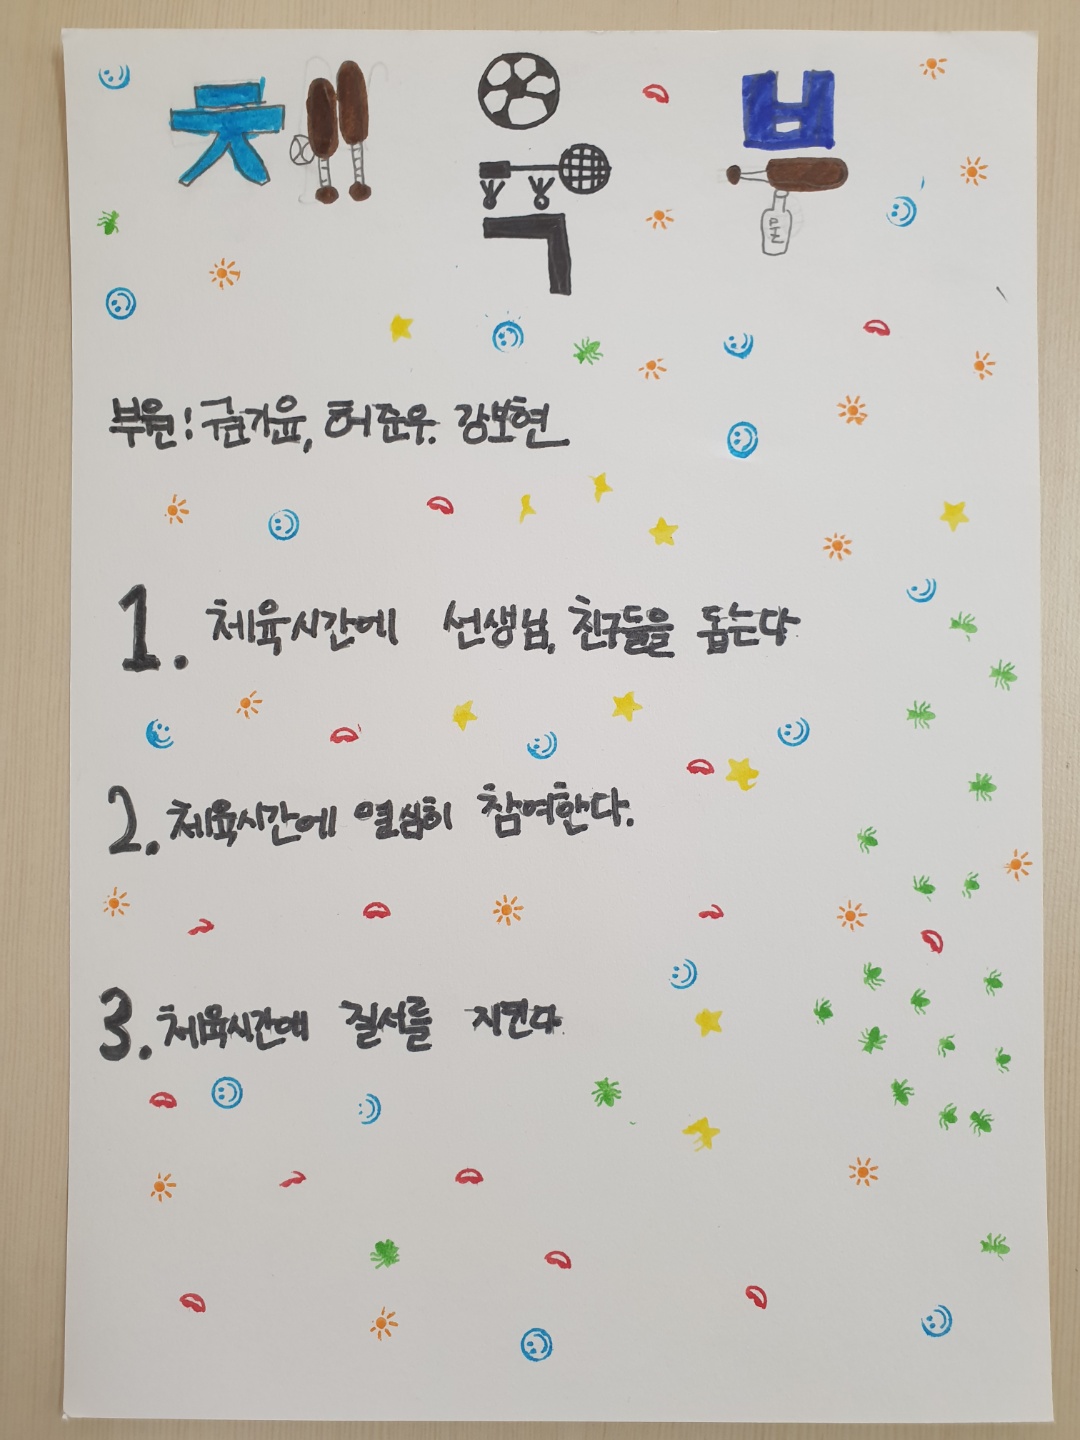 체육부
부원: 금가윤, 허준우. 강보현.
1. 체육시간에 선생님, 친구들을 돕는다
2. 체육시간에 열심히 참여한다.
3. 체육시간에 질서를 지킨다.